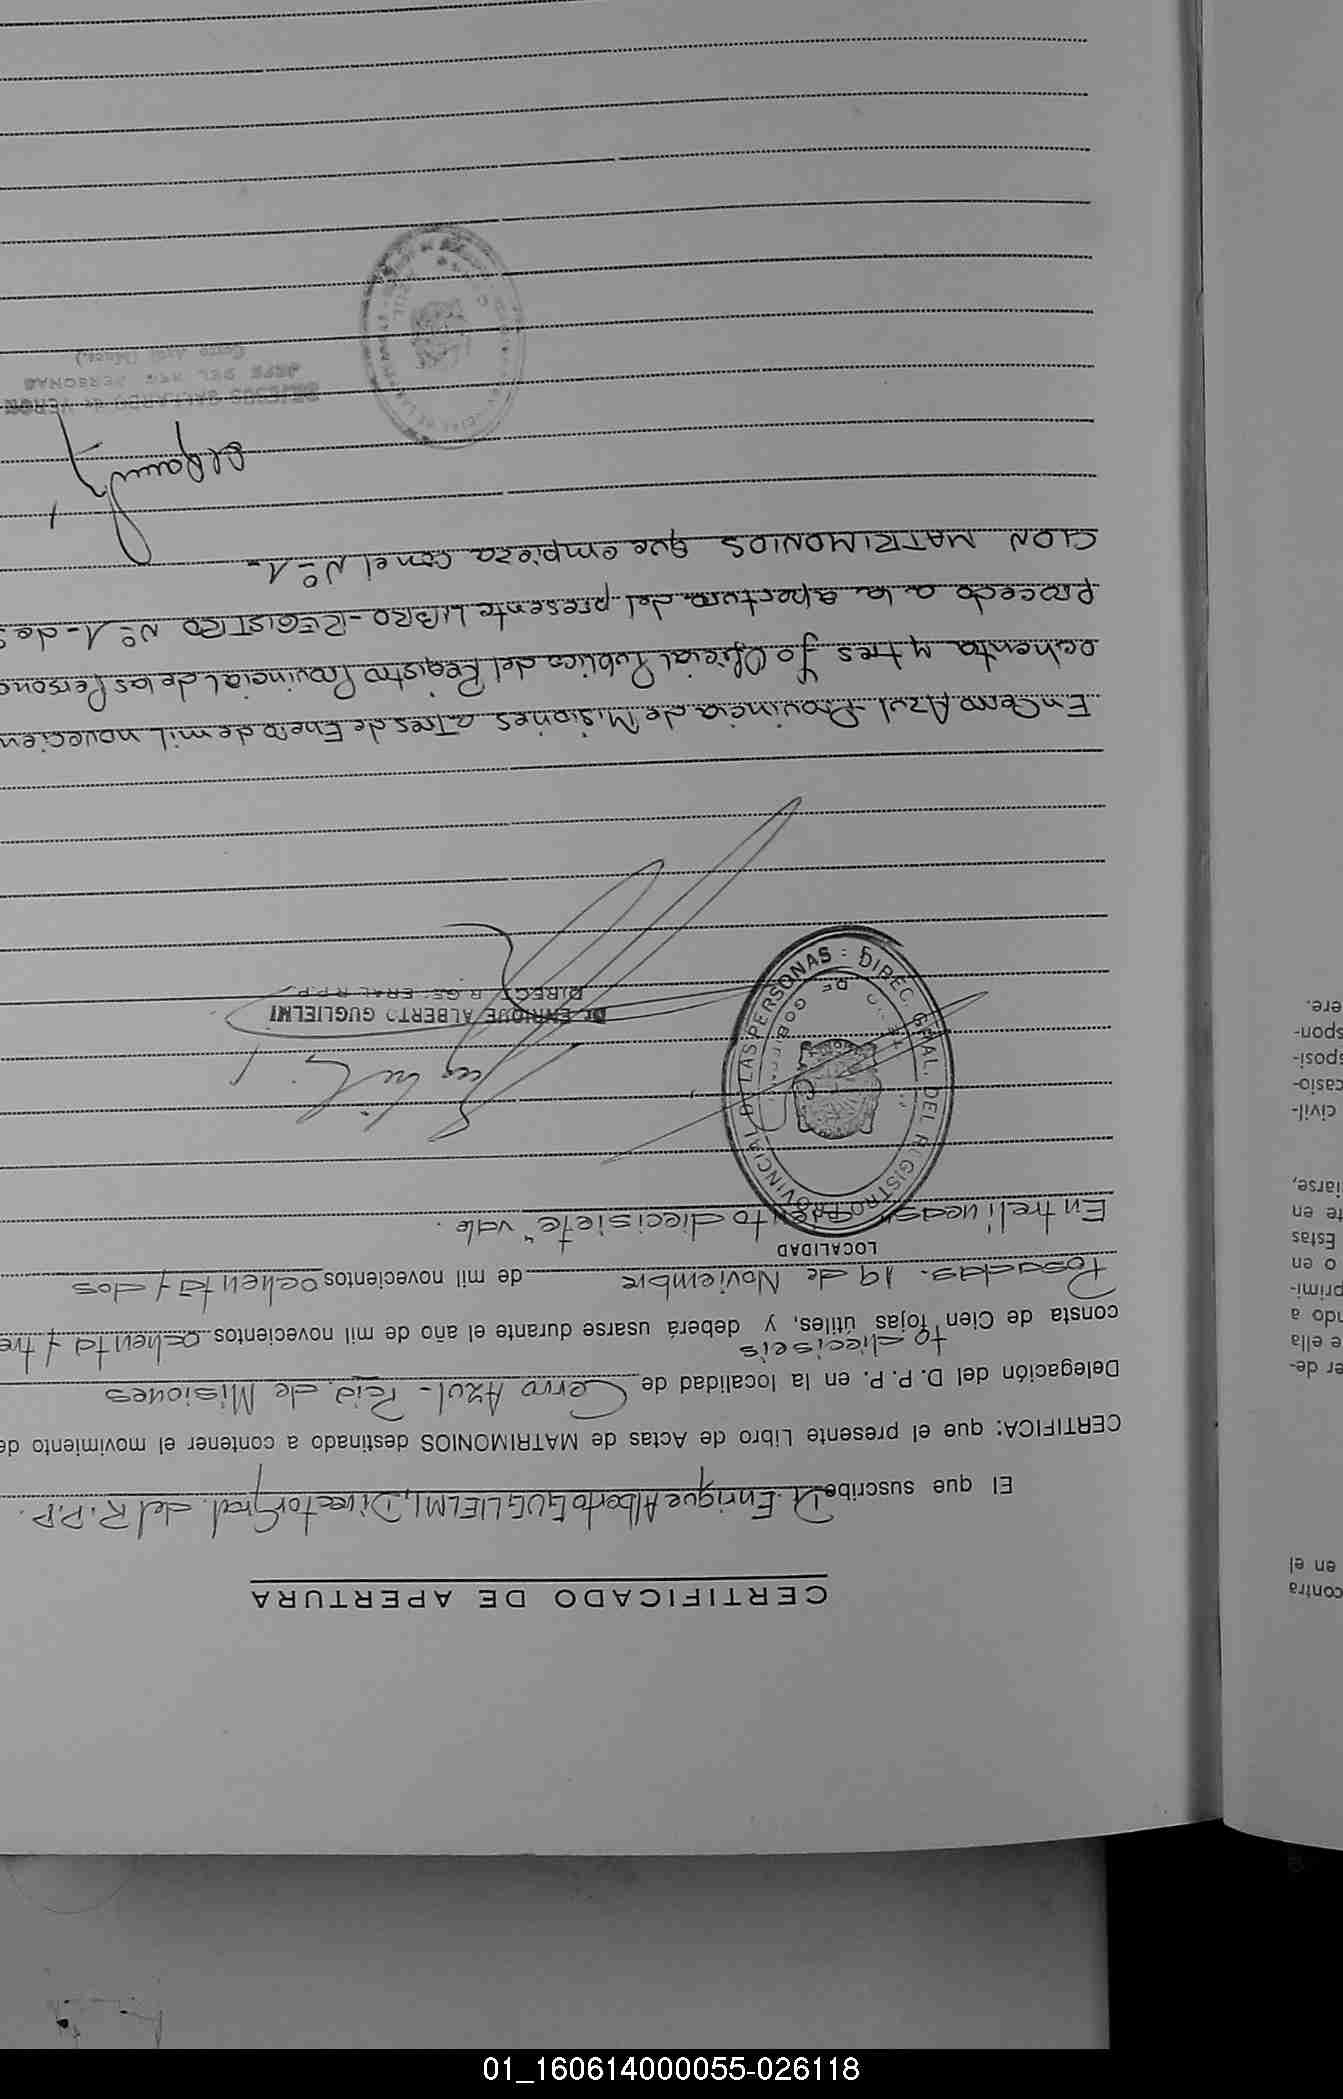 CERTIFICADO DE APERTURA
El que suscribe Dr. Enrique Alberto GUGLIELMI, Director Gral. del R.P.P.
CERTIFICA: que el presente Libro de Actas de MATRIMONIOS destinado a contener el movimiento de
Delegación del D. P. P. en la localidad de Cerro Azul - Pcia. de Misiones
to dieciseis
consta de Cien fojas útiles, y deberá usarse durante el año de mil novecientos ochenta y tre
Posadas. 19 de Noviembre de mil novecientos ochenta y dos
LOCALIDAD
Entrelíneas: to diecisiete" vale.
DIREC. GRAL. DEL REGISTRO PROVINCIAL DE LAS PERSONAS
Dr. ENRIQUE ALBERTO GUGLIELMI
DIRECTOR GENERAL R.P.P.
En Cerro Azul - Provincia de Misiones a Tres de Enero de mil novecien
ochenta y tres Yo Oficial Publica del Registro Provincial de las Persona
procedo a la apertura del presente LIBRO - REGISTRO Nº 1 - de S
CION MATRIMONIOS que empieza con el Nº 1-
DE VERON
JEFE DEL REG. PERSONAS
Cerro Azul (Mnes.)
contra
en el
er de-
e ella
ndo a
primi-
o en
Estas
te en
iarse,
civil-
casio-
sposi-
spon-
ere.
01_160614000055-026118